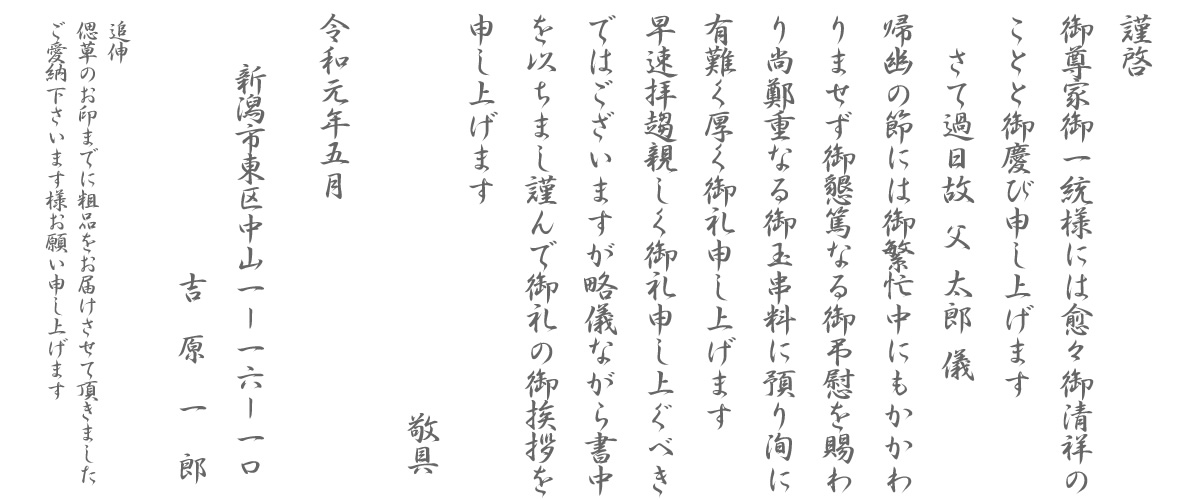 謹啓
御尊家御一統様には愈々御清祥の
ことと御慶び申し上げます
さて過日故 父 太郎 儀
帰幽の節には御繁忙中にもかかわ
りませず御懇篤なる御弔慰を賜わ
り尚鄭重なる御玉串料に預り洵に
有難く厚く御礼申し上げます
早速拝趨親しく御礼申し上ぐべき
ではございますが略儀ながら書中
を以ちまし謹んで御礼の御挨拶を
申し上げます
敬具
令和元年五月
新潟市東区中山一ー一六ー一口
吉原一郎
追伸
偲草のお印までに粗品をお届けさせて頂きました
ご愛納下さいます様お願い申し上げます